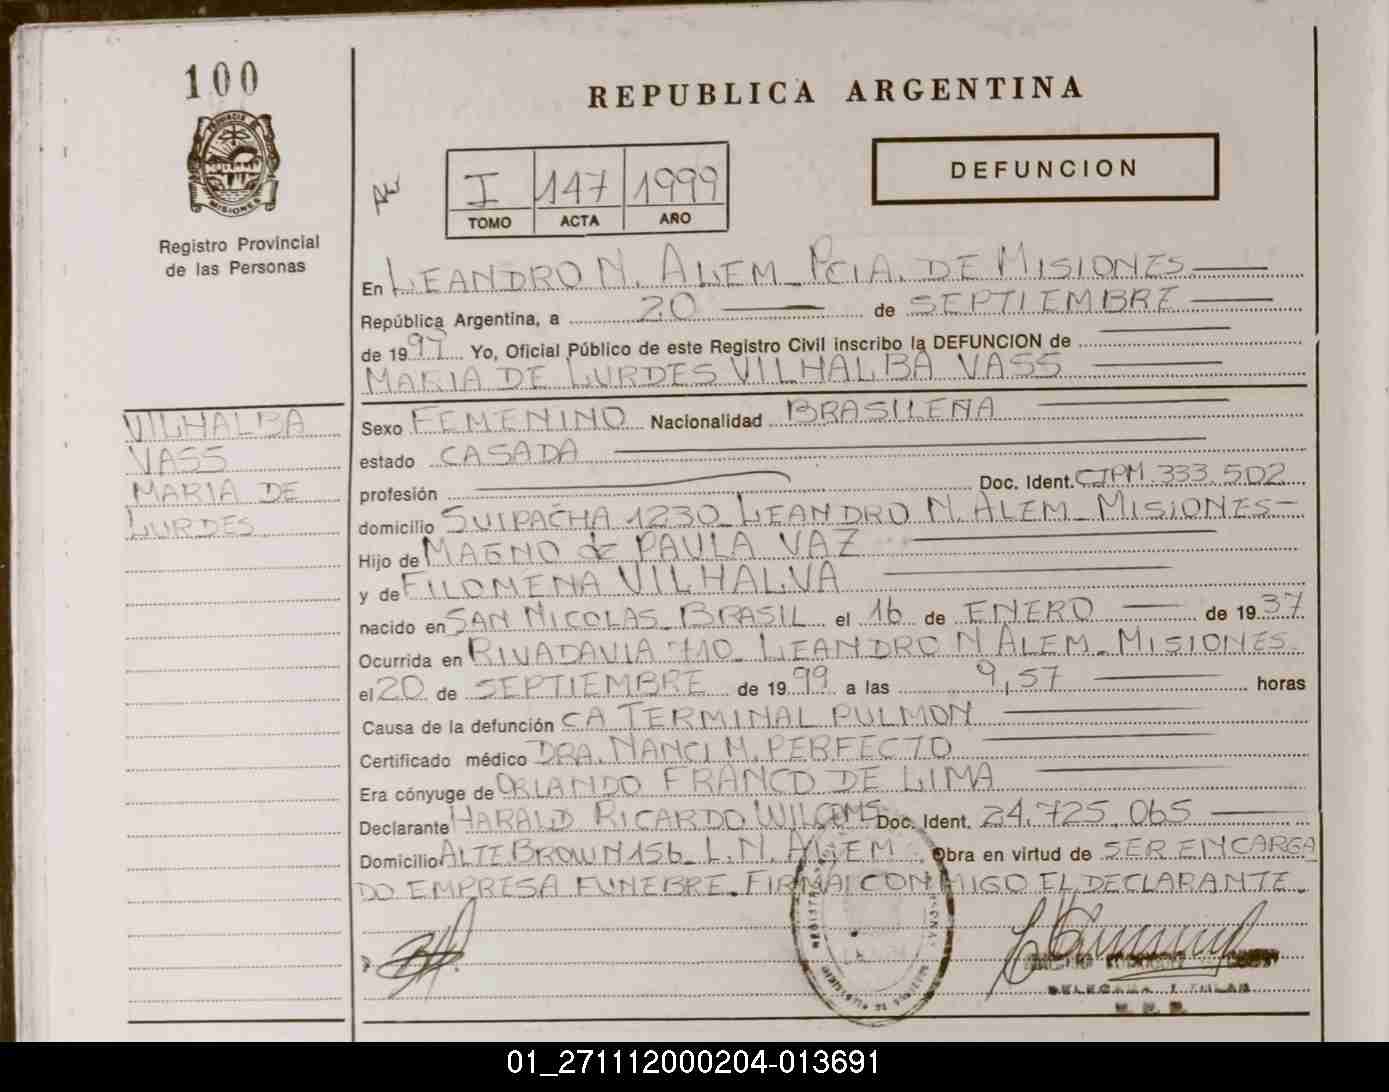 100
PROVINCIA DE
MISIONES
Registro Provincial
de las Personas
REPUBLICA ARGENTINA
I 147 1999
TOMO ACTA AÑO
DEFUNCION
En LEANDRO N. ALEM_ PCIA. DE MISIONES
República Argentina, a 20 de SEPTIEMBRE
de 1999 Yo, Oficial Público de este Registro Civil inscribo la DEFUNCION de
MARIA DE LURDES VILHALBA VASS
VILHALBA
VASS
MARIA DE
LURDES
Sexo FEMENINO Nacionalidad BRASILENA
estado CASADA
profesión Doc. Ident. CIPM 333.502
domicilio SUIPACHA 1230_ LEANDRO N. ALEM_ MISIONES
Hijo de MAGNO de PAULA VAZ
y de FILOMENA VILHALVA
nacido en SAN NICOLAS_ BRASIL el 16 de ENERO de 1937
Ocurrida en RIVADAVIA 710_ LEANDRO N ALEM_ MISIONES.
el 20 de SEPTIEMBRE de 1999 a las 9,57 horas
Causa de la defunción CA TERMINAL PULMON
Certificado médico DRA. NANCI M. PERFECTO
Era cónyuge de ORLANDO FRANCO DE LIMA
Declarante HARALD RICARDO Doc. Ident. 24.725.065
Domicilio ALTE BROWN 156_ L.N. ALEM Obra en virtud de SER ENCARGA
DO EMPRESA FUNEBRE. FIRMA CONMIGO EL DECLARANTE.
DELEGADA TITULAR
01_271112000204-013691